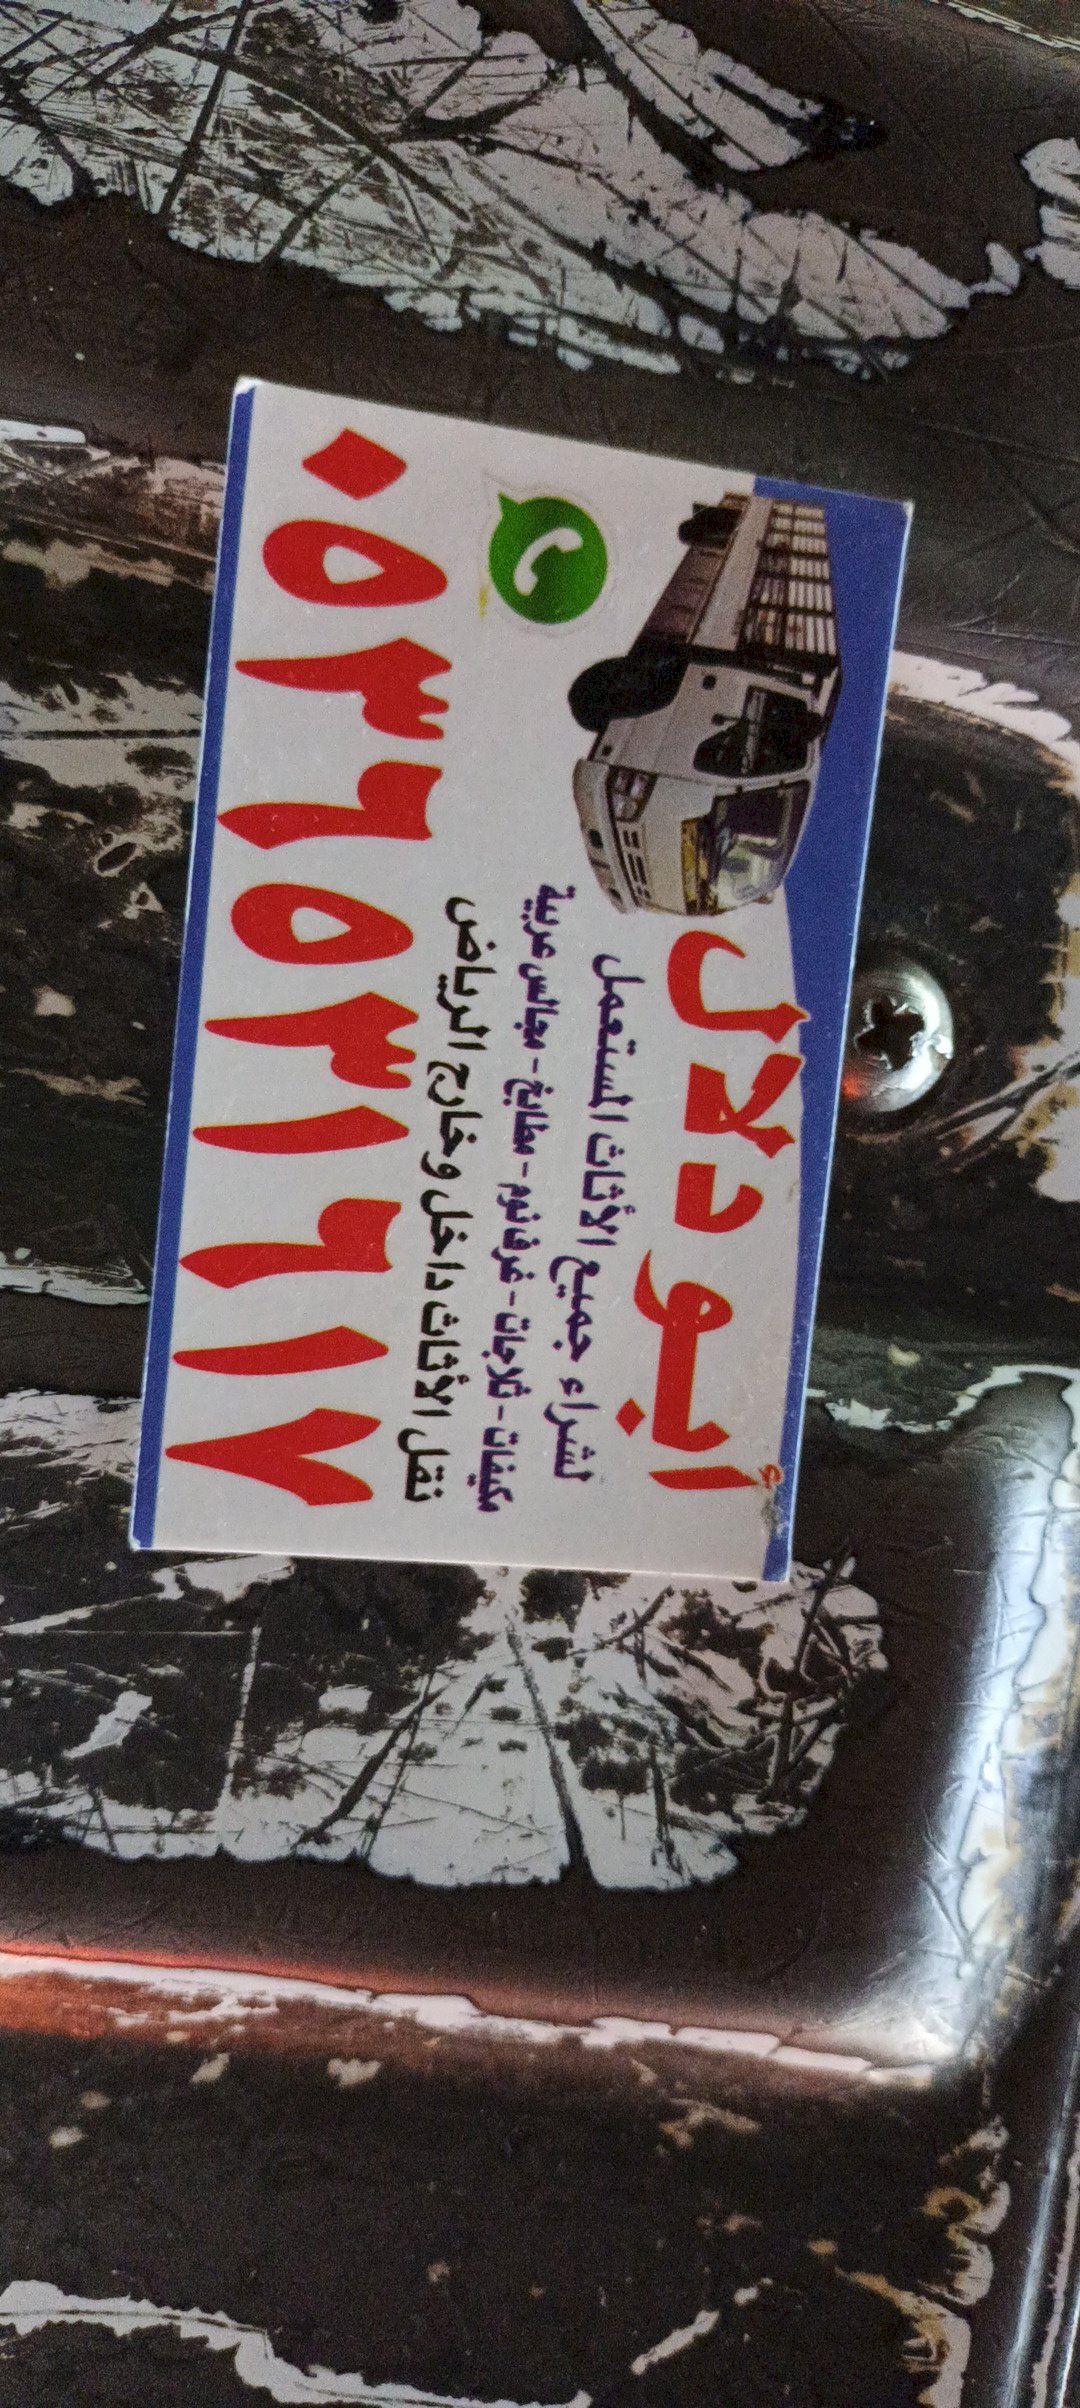 أبو دلال
لشراء جميع الأثاث المستعمل
مكيفات - ثلاجات - غرف نوم - مطابخ - مجالس عربية
نقل الأثاث داخل وخارج الرياض
٠٥٣٦٥٣١٦١٧